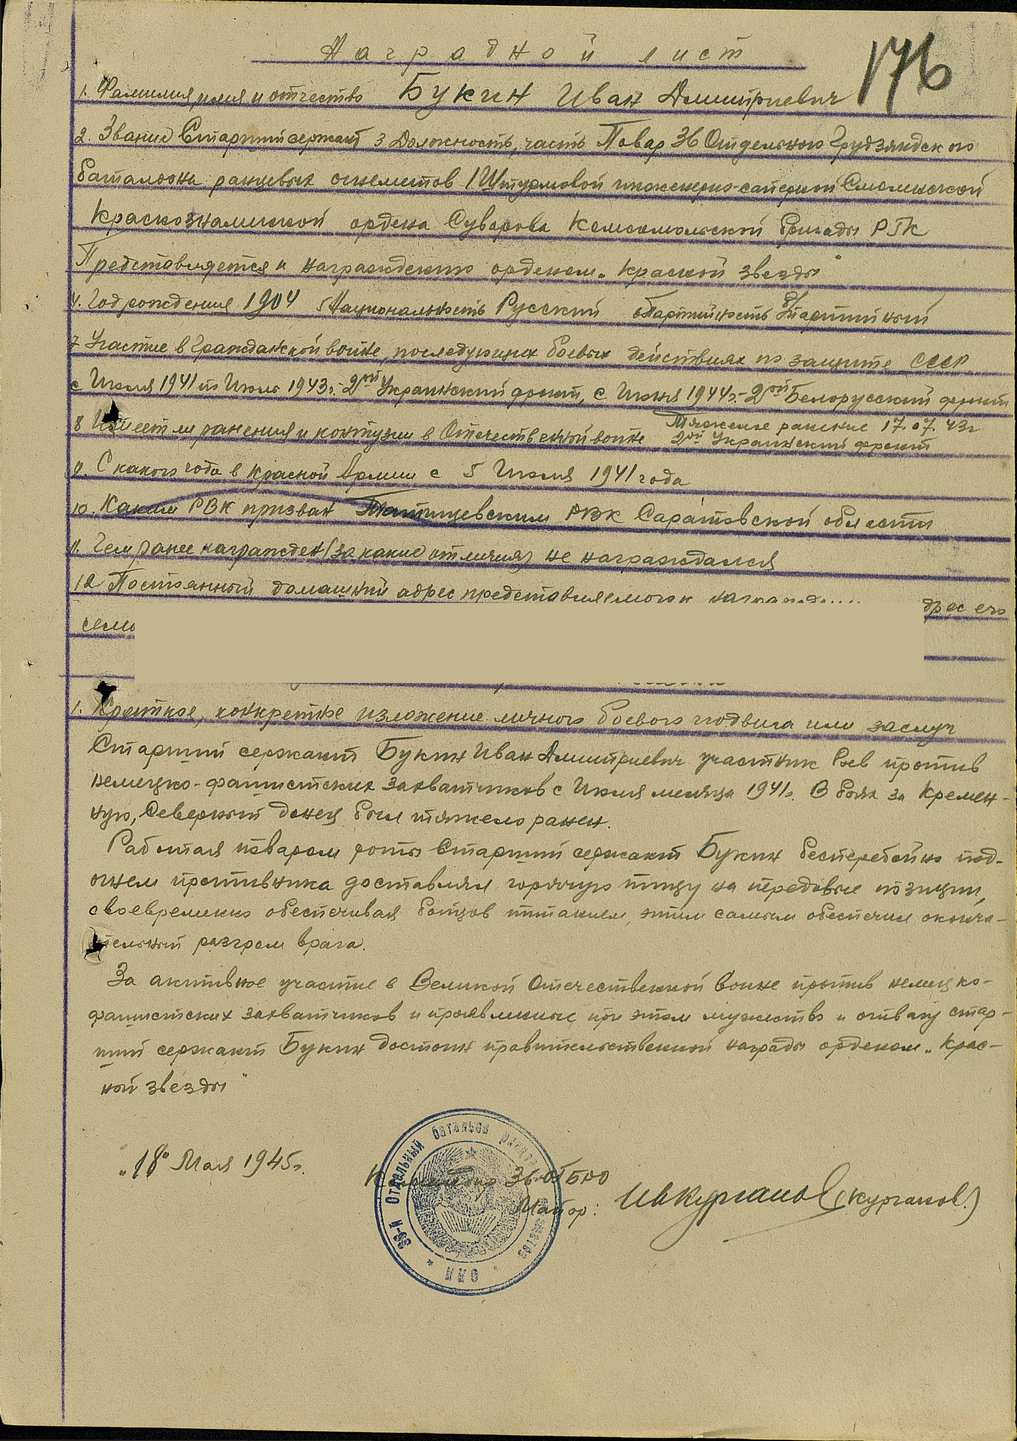 Наградной лист
176
1. Фамилия, имя и отчество Букин Иван Дмитриевич
2. Звание Старший сержант 3 Должность, часть Повар 36 Отдельного Грудзяндского
батальона ранцевых огнеметов 1 Штурмовой инженерно-саперной Смоленской
Краснознаменной ордена Суворова Комсомольской бригады РГК
Представляется к награждению орденом „Красной звезды"
4. Год рождения 1904 5 Национальность Русский 6 Партийность б/партийный
7 Участие в гражданской войне, последующих боевых действиях по защите СССР
с Июля 1941 по Июль 1943 г. - 2ой Украинский фронт, с Июня 1944 г. - 2ой Белорусский фронт
8 Имеет ли ранения и контузии в Отечественной войне Тяжелое ранение 17.07.43 г
2ой Украинский фронт
9. С какого года в Красной Армии с 5 Июля 1941 года
10. Каким РВК призван Татищевским РВК Саратовской области
11. Чем ранее награжден (за какие отличия) не награждался
12 Постоянный домашний адрес представляемого к адрес его
1. Краткое, конкретное изложение личного боевого подвига или заслуг
Старший сержант Букин Иван Дмитриевич участник боев против
немецко-фашистских захватчиков с Июля месяца 1941 г. В боях за Кремен-
ную, Северный донец был тяжело ранен.
Работая поваром роты Старший сержант Букин бесперебойно под-
огнем противника доставлял горячую пищу на передовые позиции,
своевременно обеспечивая бойцов питанием, этим самым обеспечил оконча-
тельный разгром врага.
За активное участие в Великой Отечественной войне против немецко-
фашистских захватчиков и проявленные при этом мужество и отвагу стар-
ший сержант Букин достоин правительственной награды орденом „Крас-
ной звезды"
„18" Мая 1945 г.
Командир 36 ОБРО
Майор: (Курганов.)
36-й Отдельный батальон
СССР